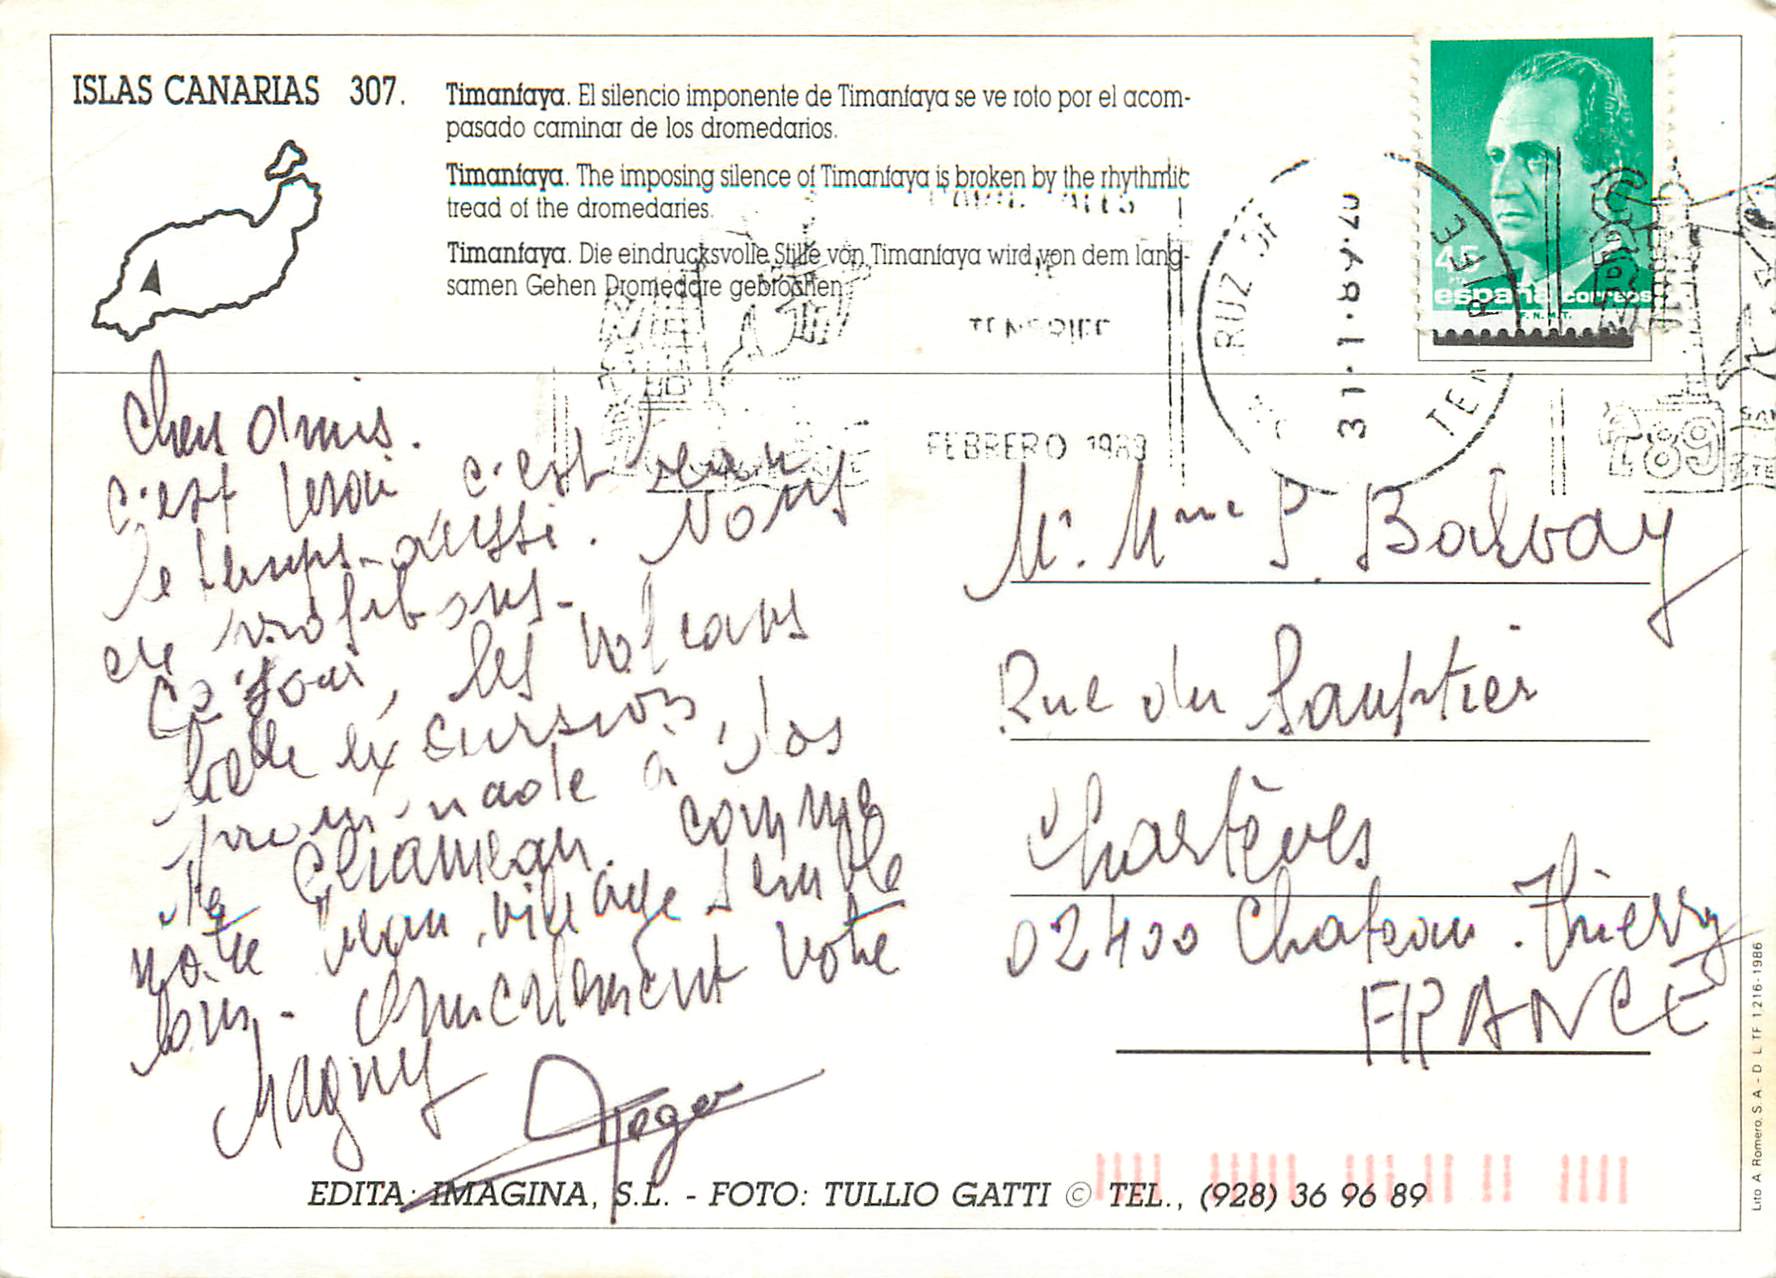 ISLAS CANARIAS 307.
Timanfaya. El silencio imponente de Timanfaya se ve roto por el acom-
pasado caminar de los dromedarios.
Timanfaya. The imposing silence of Timanfaya is broken by the rhythmic
tread of the dromedaries.
Timanfaya. Die eindrucksvolle Stille von Timanfaya wird von dem lang-
samen Gehen Dromedare gebrochen.
45
españa correos
F.N.M.T.
RUZ DE TENERIFE
31-1-89.20
FEBRERO 1989
89
Chers amis.
c'est vrai c'est beau
le temps aussi. Nous
en profitons.
Ce jour, les volcans
belle excursion,
promenade à dos
de chameau. comme
notre beau village semble
loin. Amicalement votre
Magny
Roger
Mr. Mme P. Balvay
Rue du Sauptier
Chartèves
02400 Chateau-Thierry
FRANCE
EDITA: IMAGINA, S.L. - FOTO: TULLIO GATTI © TEL., (928) 36 96 89
Lito A. Romero, S. A. - D. L. TF. 1.216-1986